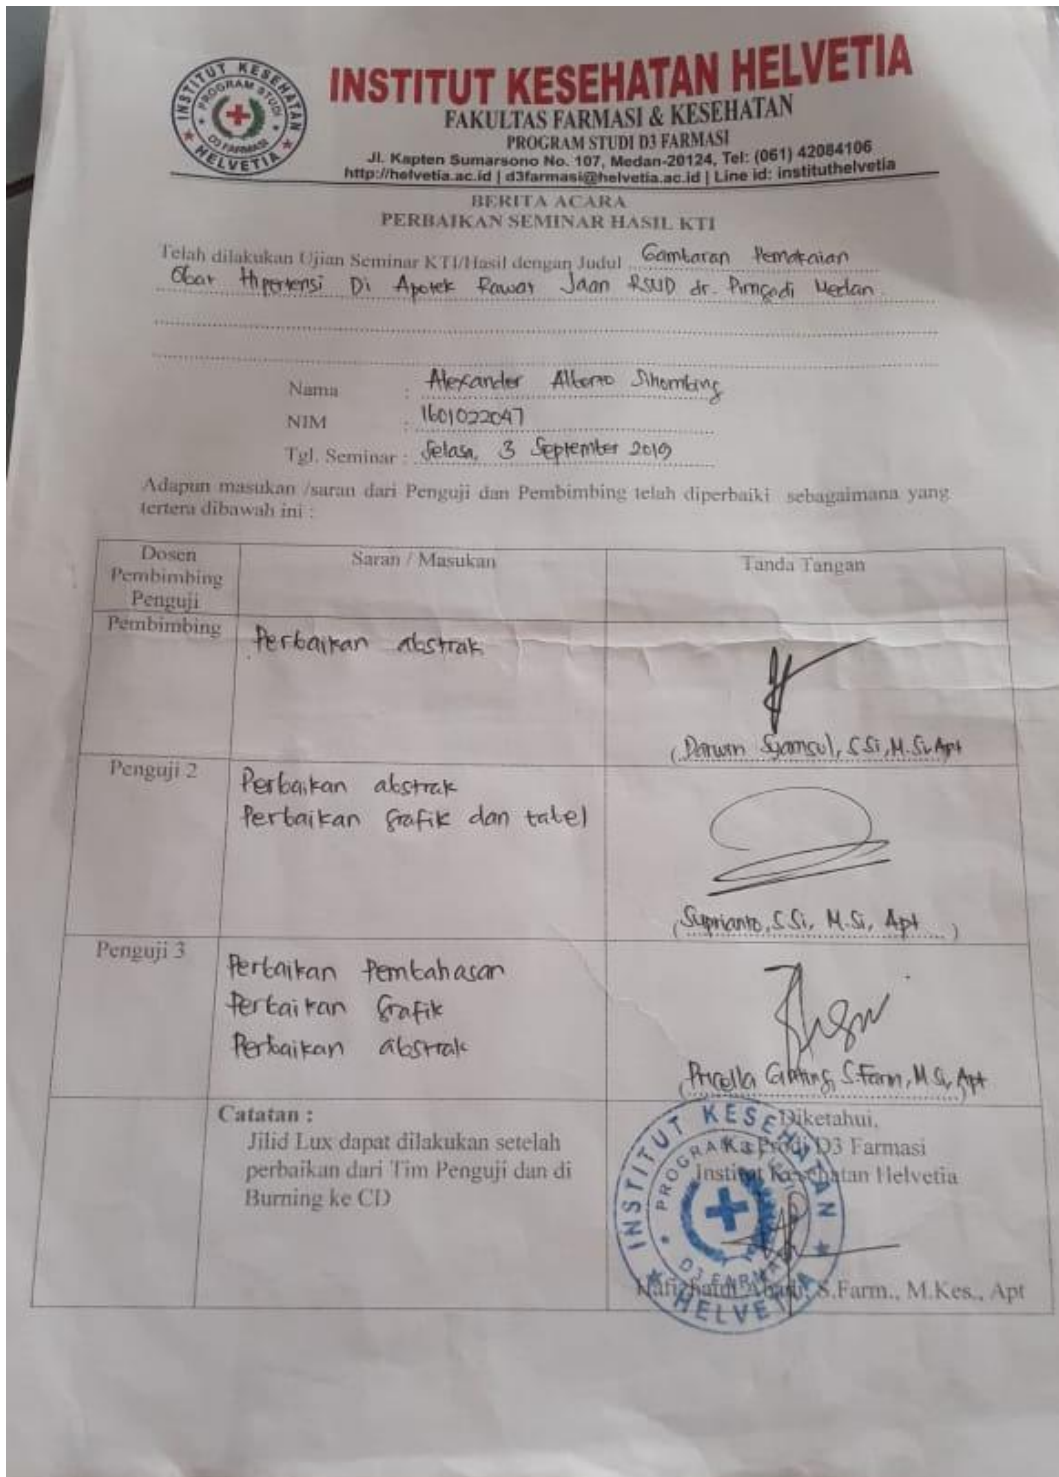 INSTITUT KESEHATAN HELVETIA
PROGRAM STUDI
D3 FARMASI
INSTITUT KESEHATAN HELVETIA
FAKULTAS FARMASI & KESEHATAN
PROGRAM STUDI D3 FARMASI
Jl. Kapten Sumarsono No. 107, Medan-20124, Tel: (061) 42084106
http://helvetia.ac.id | d3farmasi@helvetia.ac.id | Line id: instituthelvetia
BERITA ACARA
PERBAIKAN SEMINAR HASIL KTI
Telah dilakukan Ujian Seminar KTI/Hasil dengan Judul Gambaran Pemakaian
Obat Hipertensi Di Apotek Rawat Jaan RSUD dr. Pirngadi Medan.
Nama : Alexander Alberto Sihombing
NIM : 1601022047
Tgl. Seminar : Selasa, 3 September 2019
Adapun masukan /saran dari Penguji dan Pembimbing telah diperbaiki sebagaimana yang
tertera dibawah ini :
Dosen Pembimbing Penguji
Saran / Masukan
Tanda Tangan
Pembimbing
Perbaikan abstrak
(Darwin Syamsul, S.Si, M.Si, Apt
Penguji 2
Perbaikan abstrak
Perbaikan grafik dan tabel
(Suprianto, S.Si, M.Si, Apt )
Penguji 3
Perbaikan Pembahasan
Perbaikan Grafik
Perbaikan abstrak
(Pricella Ginting, S.Farm, M.Si, Apt
Catatan :
Jilid Lux dapat dilakukan setelah
perbaikan dari Tim Penguji dan di
Burning ke CD
Diketahui,
Ka Prodi D3 Farmasi
Institut Kesehatan Helvetia
INSTITUT KESEHATAN HELVETIA
PROGRAM STUDI
D3 FARMASI
S.Farm., M.Kes., Apt